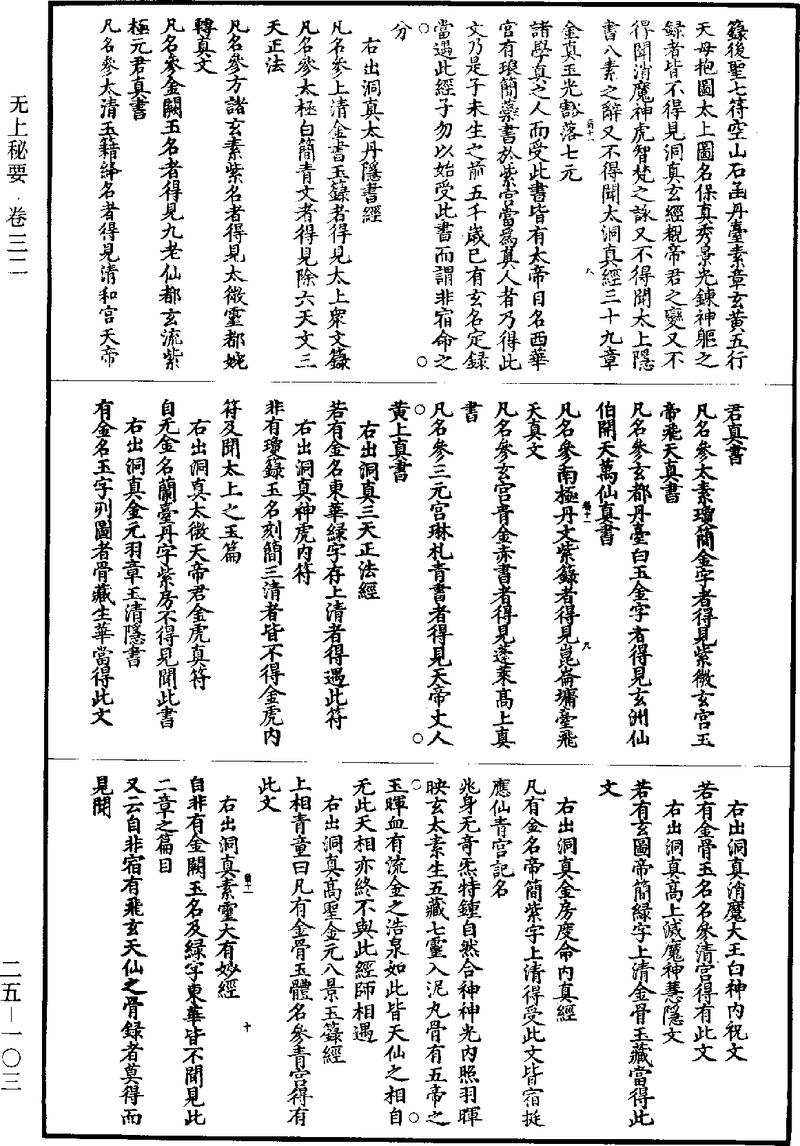 无上秘要·卷三二
籙後聖七符空山石函丹臺素章玄黄五行
天母抱圖太上圖名保真秀景光鍊神軀之
録者皆不得見洞真玄經觀帝君之變又不
得聞消魔神虎智梵之詠又不得聞太上隱
書八素之辭又不得聞太洞真經三十九章
金真玉光豁落七元
諸學真之人而受此書皆有太帝目名西華
宫有琅簡蘂書於紫宫當爲真人者乃得此
文乃是子未生之前五千歳已有玄名定録
當遇此經子勿以始受此書而謂非宿命之
分
右出洞真太丹隱書經
凡名參上清金書玉籙者得見太上衆文籙
凡名參太極白簡青文者得見除六天文三
天正法
凡名參方諸玄素紫名者得見太微靈都婉
轉真文
凡名參金闕玉名者得見九老仙都玄流紫
極元君真書
凡名參太清玉籍絳名者得見清和宫天帝
君真書
凡名參太素瓊簡金字者得見紫微玄宫玉
帝飛天真書
凡名參玄都丹臺白玉金字者得見玄洲仙
伯開天萬仙真書
凡名參南極丹文紫籙者得見崑崙墉臺飛
天真文
凡名參玄宫青金赤書者得見蓬萊高上真
書
凡名參三元宫琳札青書者得見天帝丈人
黄上真書
右出洞真三天正法經
若有金名東華緑字存上清者得遇此符
右出洞真神虎内符
非有瓊籙玉名刻簡三清者皆不得金虎内
符及聞太上之玉篇
右出洞真太微天帝君金虎真符
自无金名蘭臺丹字紫房不得見聞此書
右出洞真金元羽章玉清隱書
有金名玉字列圖者骨藏生華當得此文
右出洞真消魔大王白神内祝文
若有金骨玉名名參清宫得有此文
右出洞真高上滅魔神慧隱文
若有玄圖帝簡緑字上清金骨玉藏當得此
文
右出洞真金房度命内真經
凡有金名帝簡紫字上清得受此文皆宿挺
應仙青宫記名
兆身无奇炁特鍾自然合神神光内照羽暉
映玄太素生五藏七靈入泥九骨有五帝之
玉暉血有流金之浩泉如此皆天仙之相自
无此天相亦終不與此經師相遇
右出洞真高聖金元八景玉籙經
上相青童曰凡有金骨玉體名參青宫得有
此文
右出洞真素靈大有妙經
自非有金闕玉名及緑字東華皆不聞見此
二章之篇目
又云自非宿有飛玄天仙之骨録者莫得而
見聞
二五—一〇三